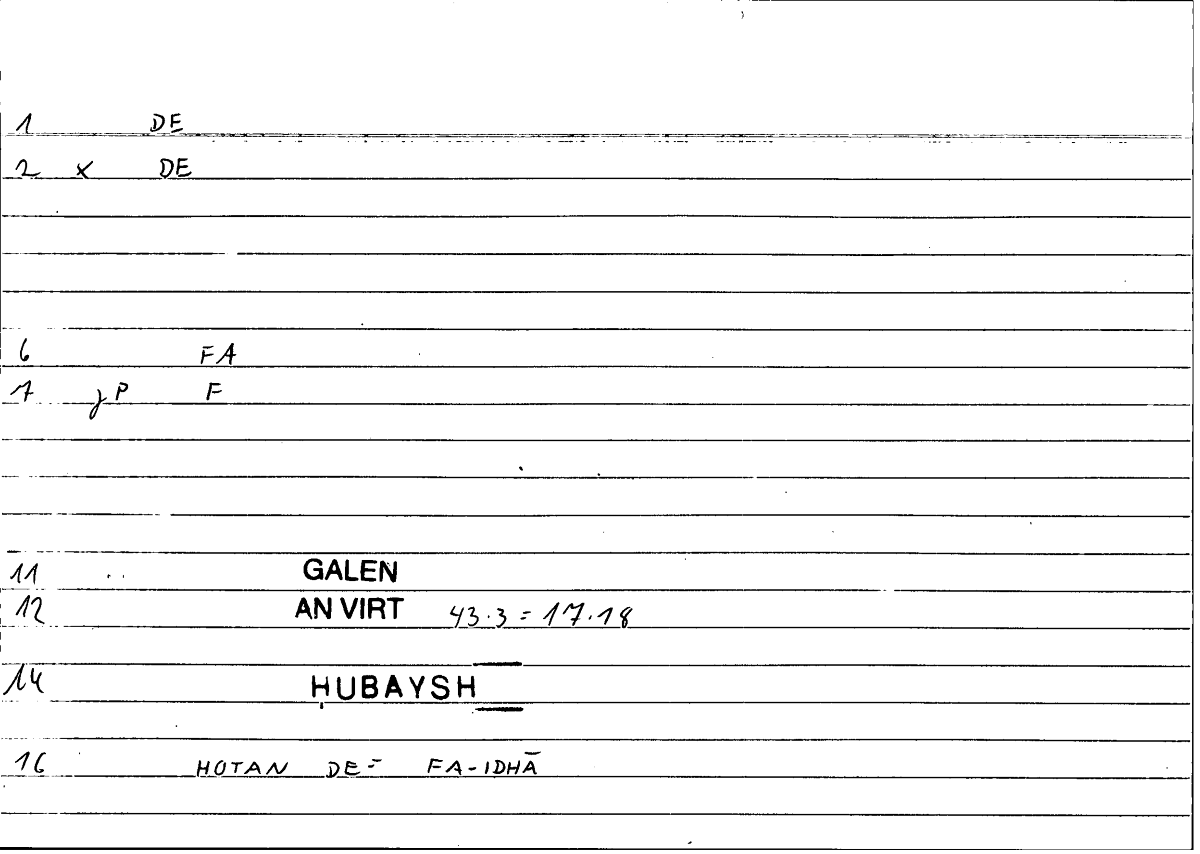 1 DE
2 x DE
6 FA
7 jP F
11 GALEN
12 AN VIRT 43.3 = 17.18
14 ḤUBAYSH
16 HOTAN DE = FA-IDHĀ